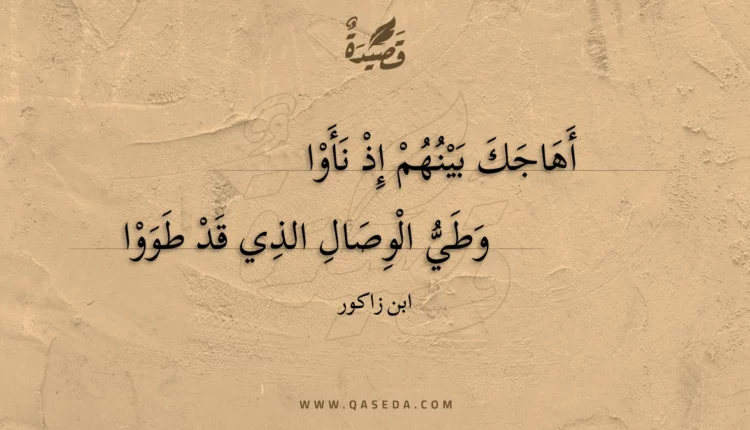 قَصِيدَةٌ
أَهَاجَكَ بَيْنُهُمْ إِذْ نَأَوْا
وَطَيُّ الْوِصَالِ الذِي قَدْ طَوَوْا
ابن زاكور
WWW.QASEDA.COM